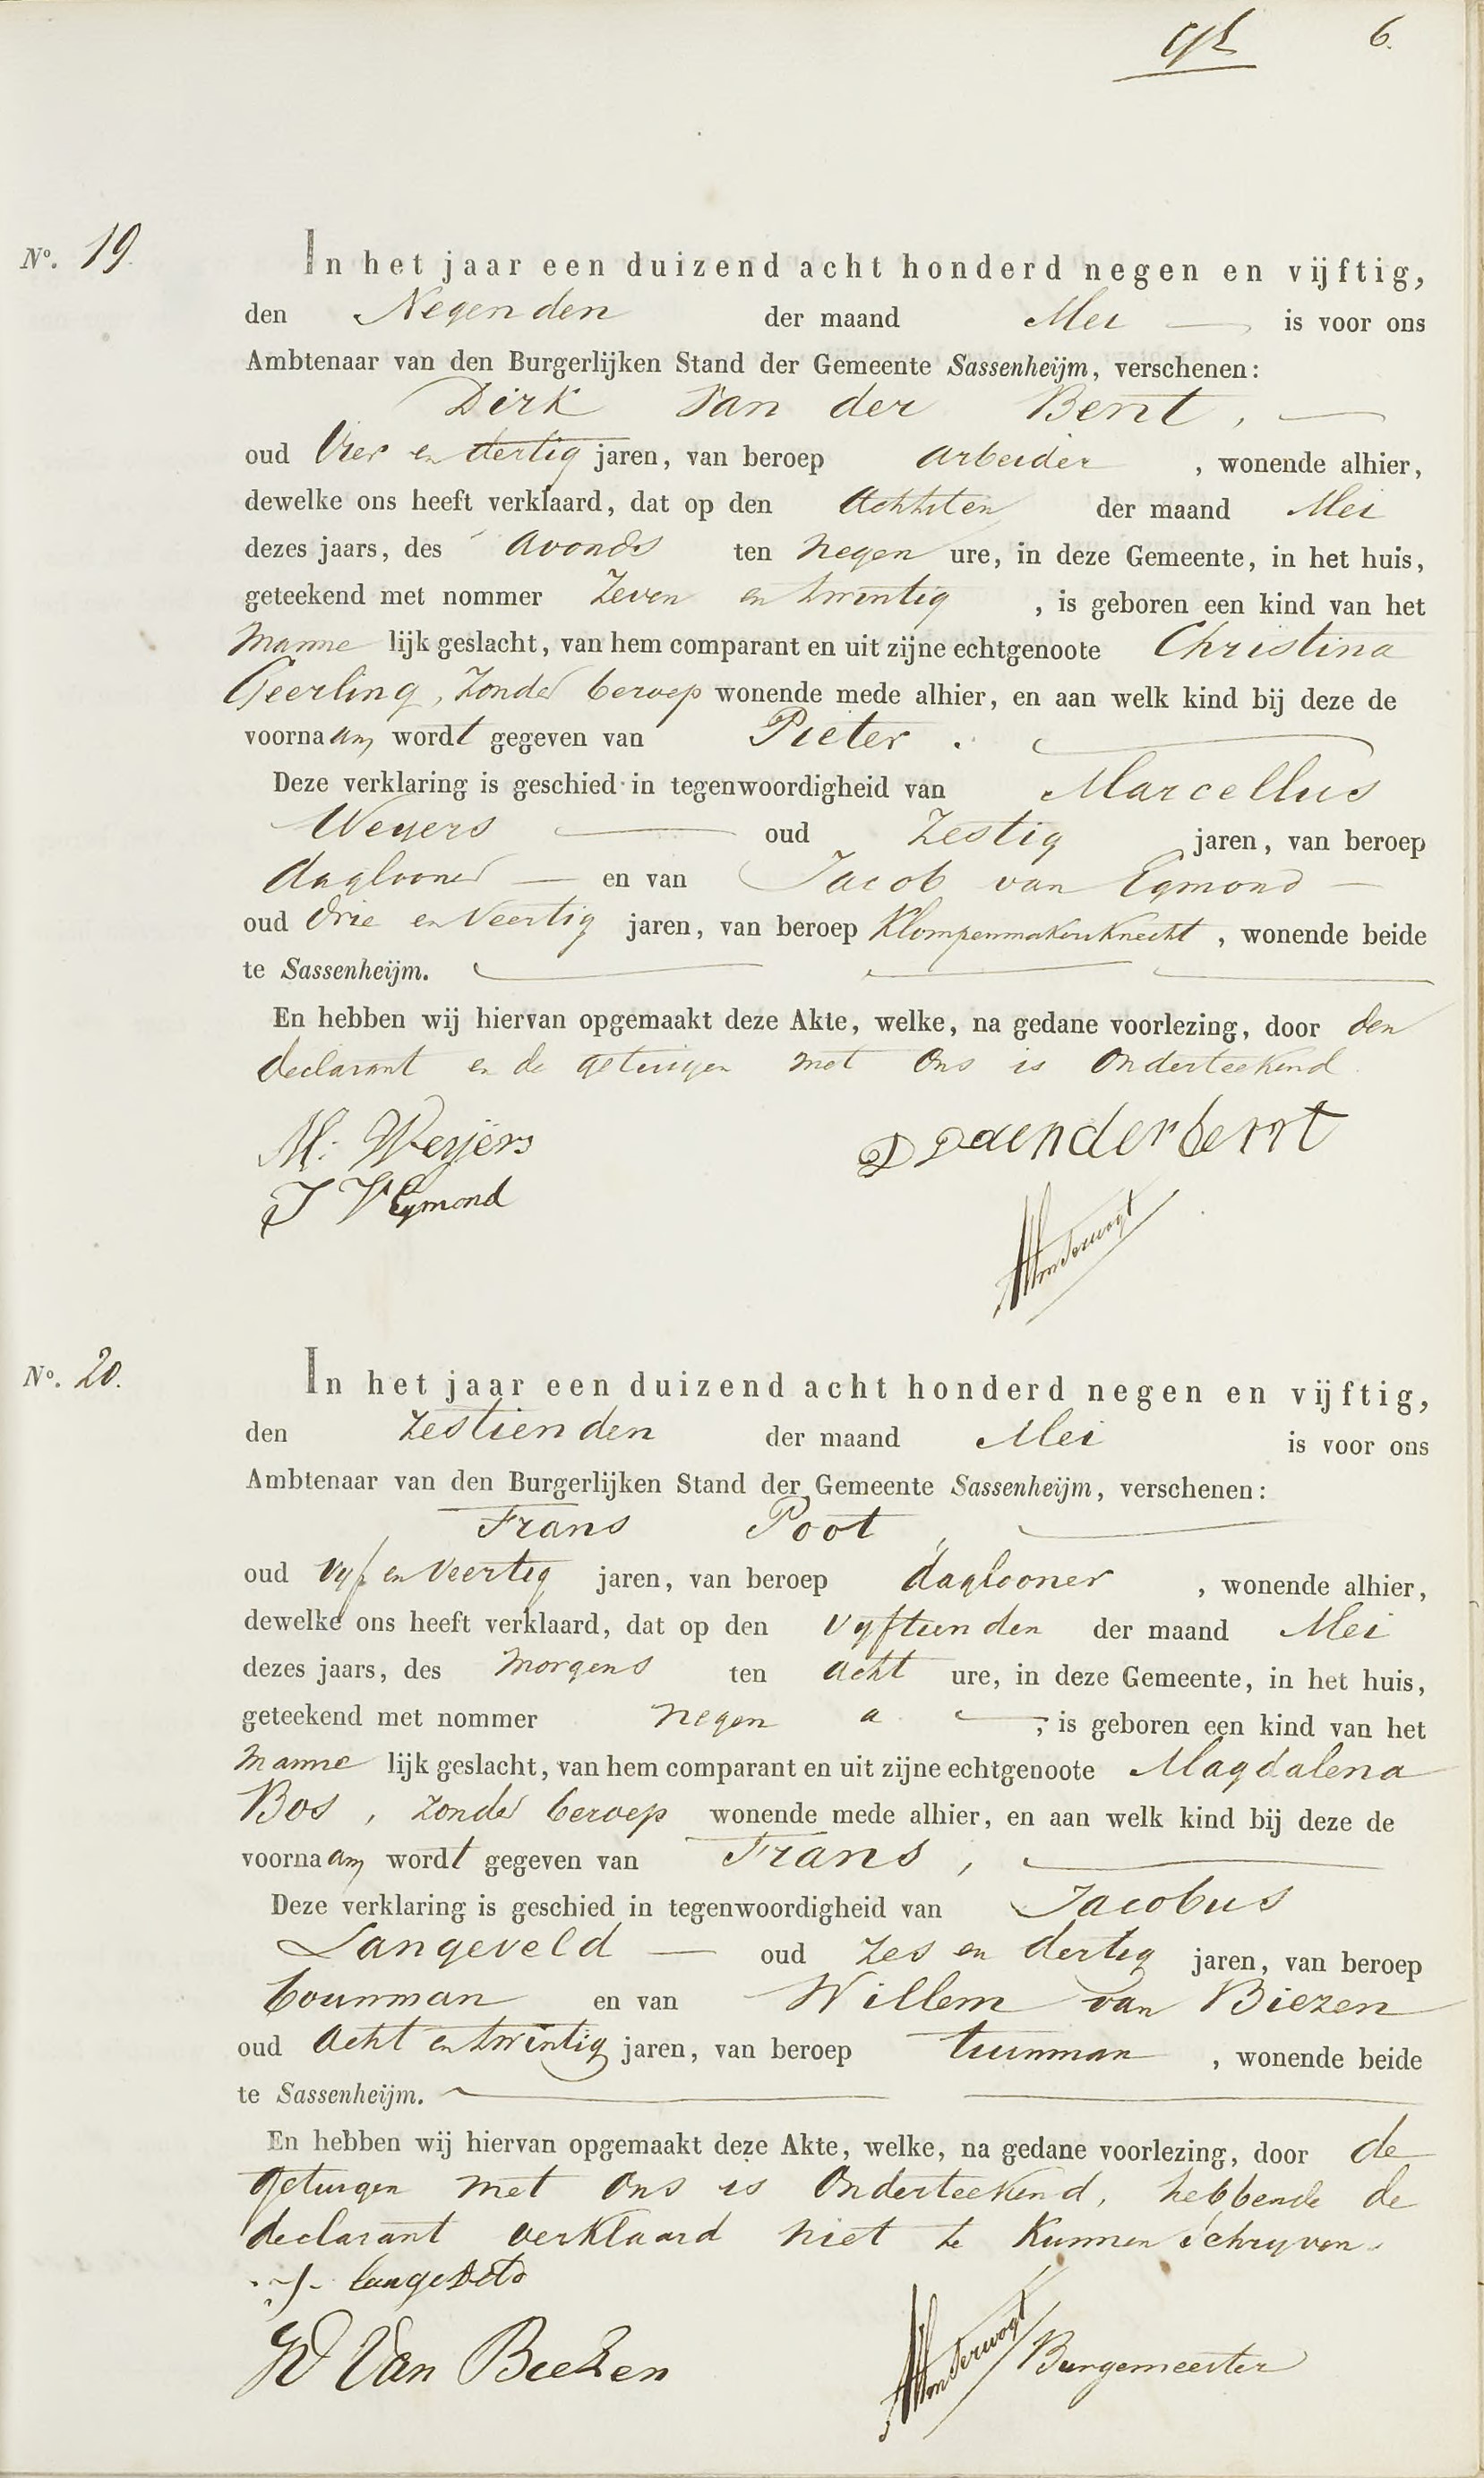 6.
No. 19.
In het jaar een duizend acht honderd negen en vijftig,
den Negenden der maand Mei is voor ons
Ambtenaar van den Burgerlijken Stand der Gemeente Sassenheijm, verschenen:
Dirk van der Bent,
oud Vier en dertig jaren, van beroep arbeider, wonende alhier,
dewelke ons heeft verklaard, dat op den Achtsten der maand Mei
dezes jaars, des avonds ten negen ure, in deze Gemeente, in het huis,
geteekend met nommer Zeven en twintig, is geboren een kind van het
manne lijk geslacht, van hem comparant en uit zijne echtgenoote Christina
Geerling, zonder beroep wonende mede alhier, en aan welk kind bij deze de
voornaam wordt gegeven van Pieter.
Deze verklaring is geschied in tegenwoordigheid van Marcellus
Weyers oud Zestig jaren, van beroep
daglooner en van Jacob van Egmond
oud drie en veertig jaren, van beroep Klompenmakersknecht, wonende beide
te Sassenheijm.
En hebben wij hiervan opgemaakt deze Akte, welke, na gedane voorlezing, door den
declarant en de getuigen met ons is onderteekend.
M: Weijers D vaenderbent
J V Egmond
No. 20.
In het jaar een duizend acht honderd negen en vijftig,
den Zestienden der maand Mei is voor ons
Ambtenaar van den Burgerlijken Stand der Gemeente Sassenheijm, verschenen:
Frans Poot,
oud vyf en veertig jaren, van beroep daglooner, wonende alhier,
dewelke ons heeft verklaard, dat op den vyftienden der maand Mei
dezes jaars, des morgens ten acht ure, in deze Gemeente, in het huis,
geteekend met nommer negen a, is geboren een kind van het
manne lijk geslacht, van hem comparant en uit zijne echtgenoote Magdalena
Bos, zonder beroep wonende mede alhier, en aan welk kind bij deze de
voornaam wordt gegeven van Frans,
Deze verklaring is geschied in tegenwoordigheid van Jacobus
Langeveld oud zes en dertig jaren, van beroep
bouwman en van Willem van Biezen
oud acht en twintig jaren, van beroep tuinman, wonende beide
te Sassenheijm.
En hebben wij hiervan opgemaakt deze Akte, welke, na gedane voorlezing, door de
getuigen met ons is onderteekend, hebbende de
declarant verklaard niet te kunnen schryven.
W Van Biezen Burgemeester